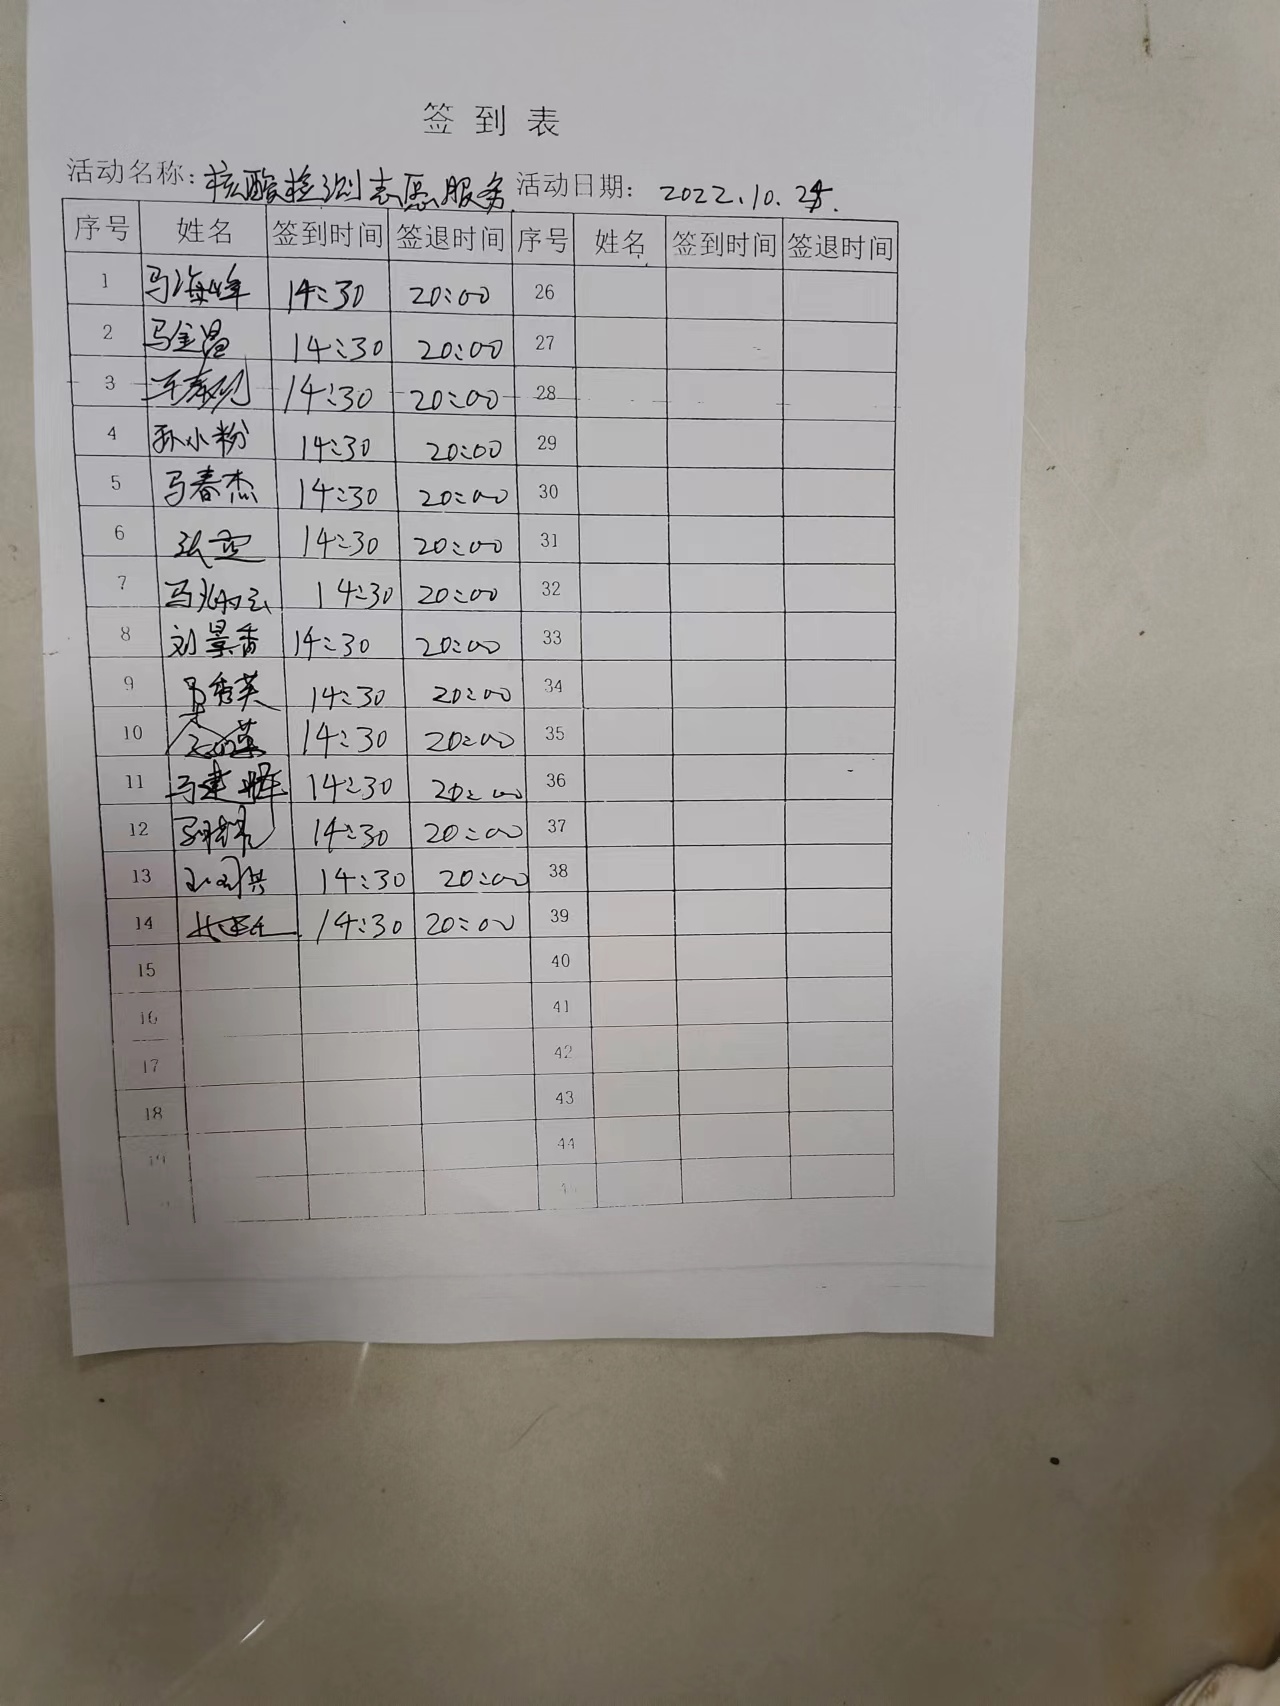 签到表
活动名称:核酸检测志愿服务 活动日期: 2022.10.
序号 姓名 签到时间 签退时间 序号 姓名 签到时间 签退时间
1 马海峰 14:30 20:00 26
2 14:30 20:00 27
3 14:30 20:00 28
4 孙小粉 14:30 20:00 29
5 马春杰 14:30 20:00 30
6 14:30 20:00 31
7 14:30 20:00 32
8 刘景香 14:30 20:00 33
9 14:30 20:00 34
10 14:30 20:00 35
11 马建峰 14:30 20:00 36
12 14:30 20:00 37
13 14:30 20:00 38
14 14:30 20:00 39
15 40
16 41
17 42
18 43
19 44